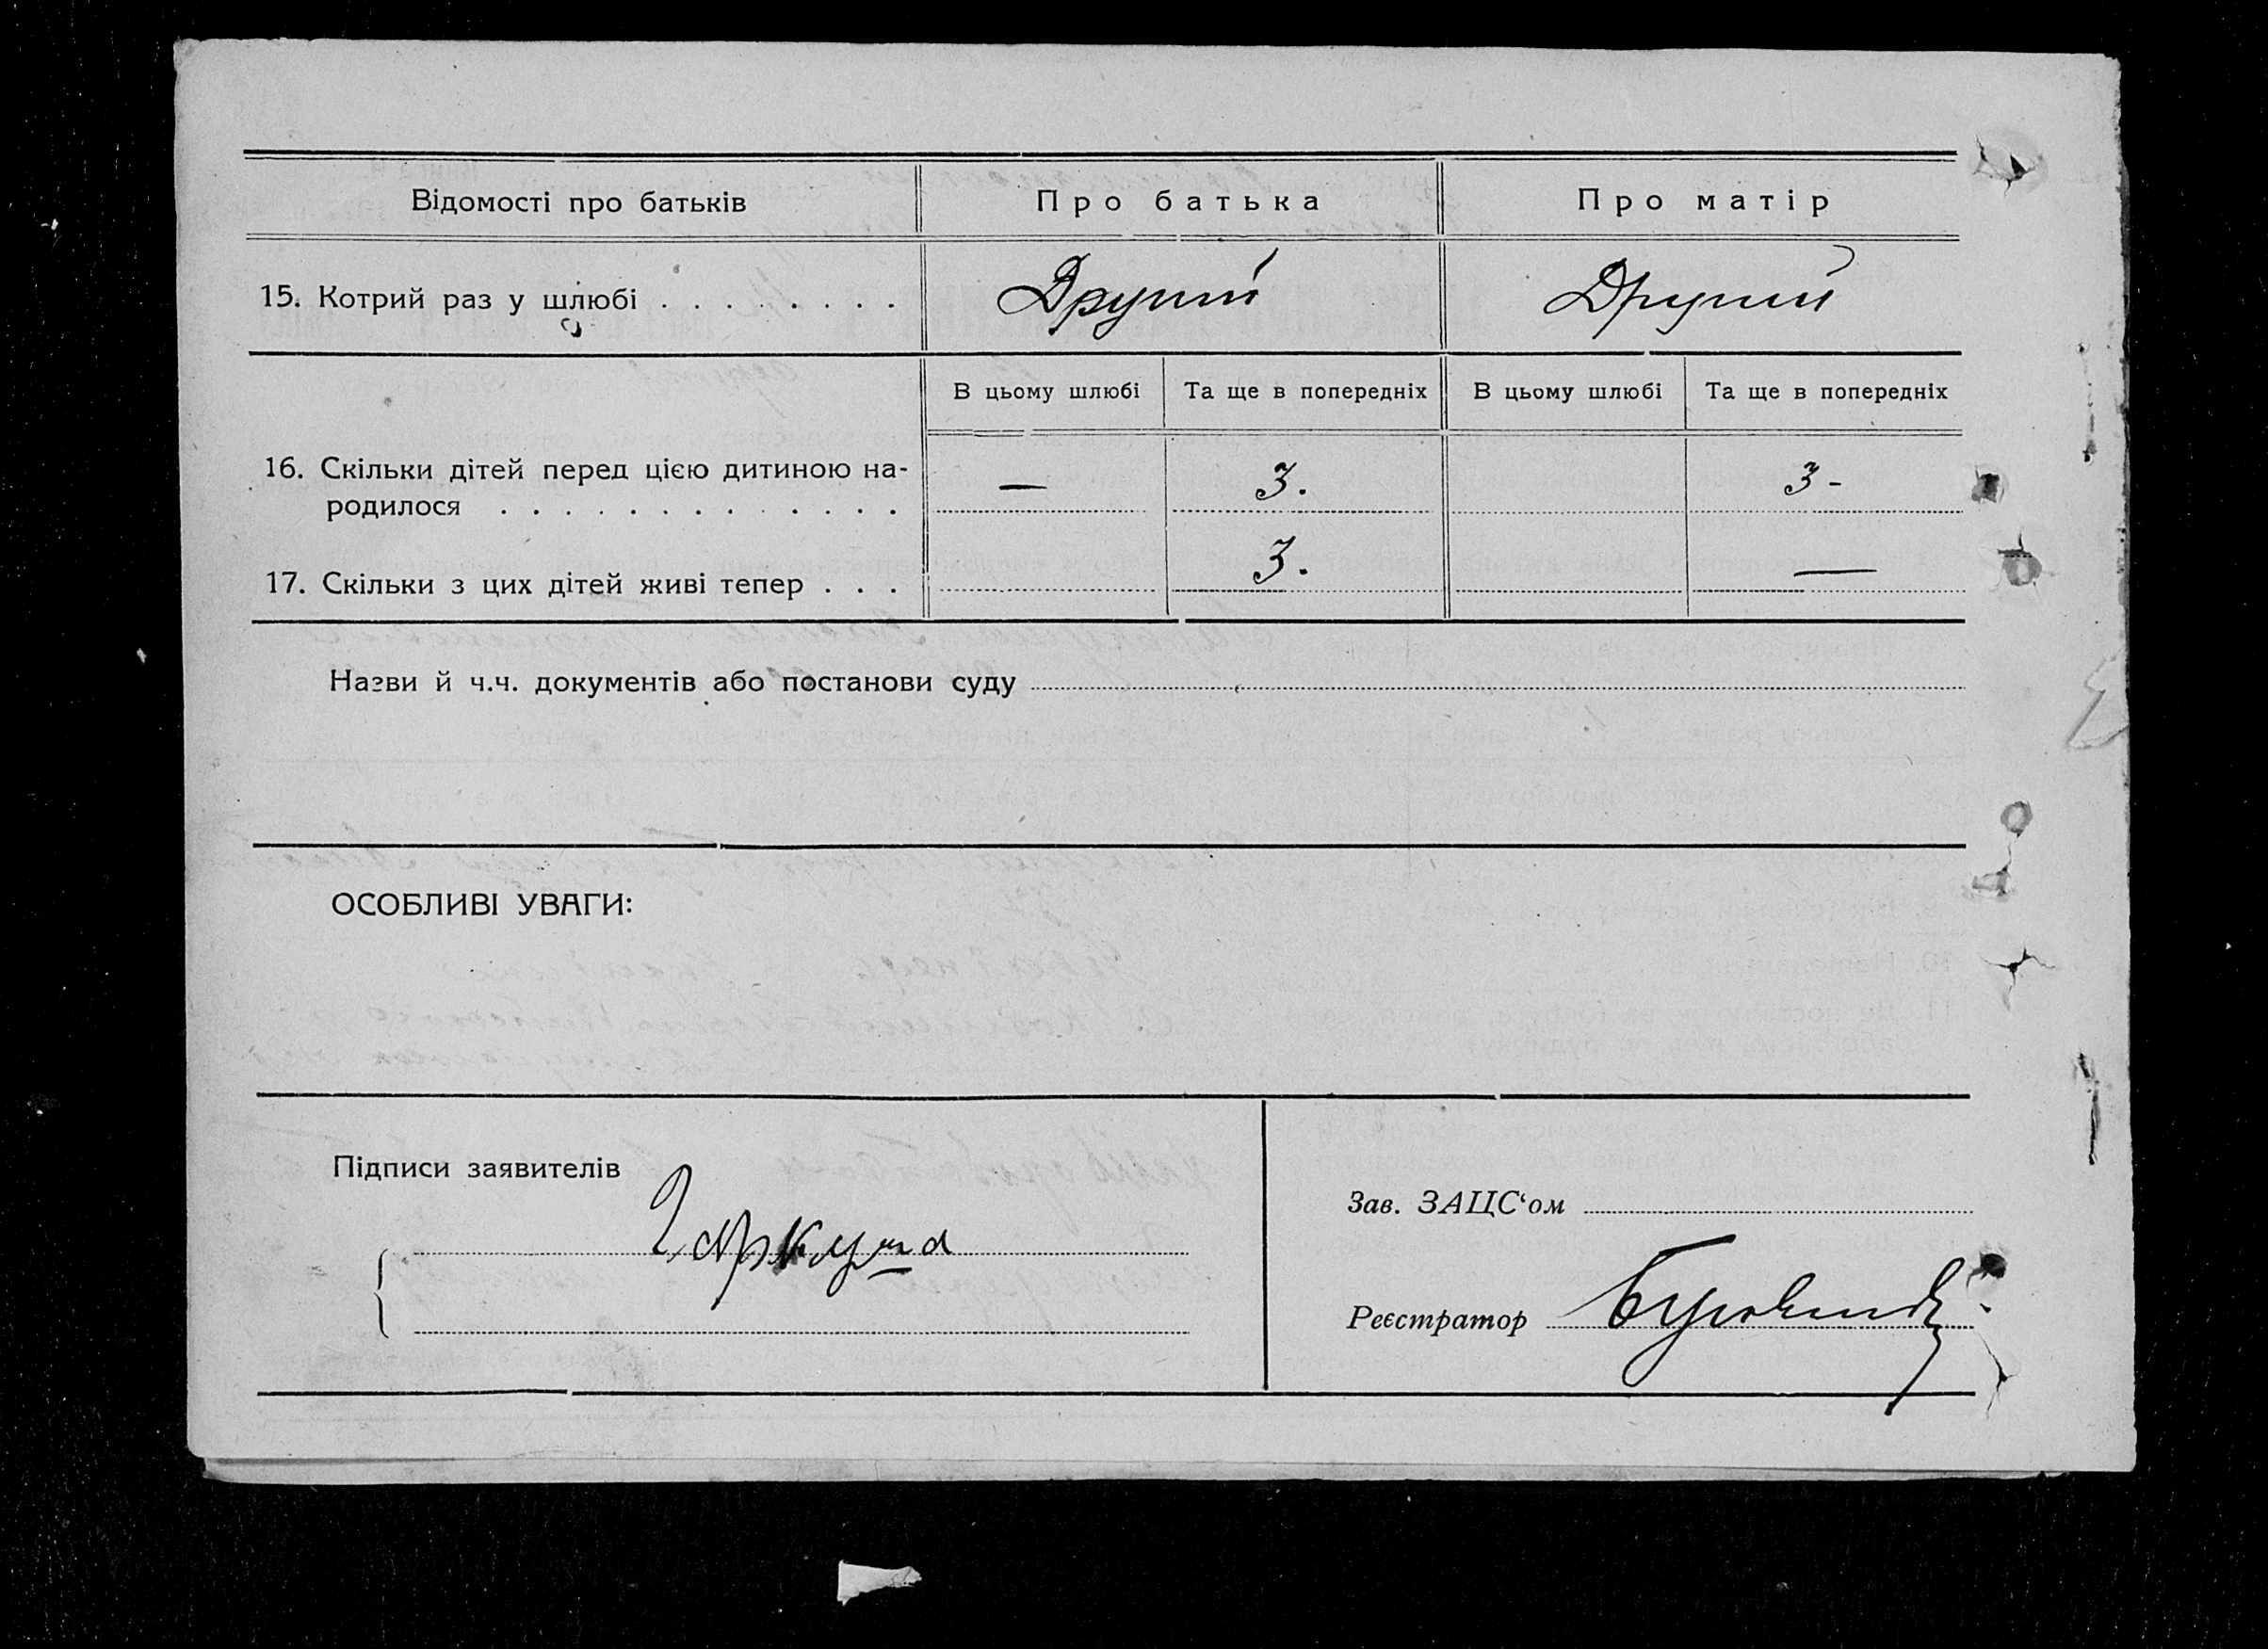 Відомості про батьків Про батька Про матір
15. Котрий раз у шлюбі . . . . . . . . Другий Другий
В цьому шлюбі Та ще в попередніх В цьому шлюбі Та ще в попередніх
16. Скільки дітей перед цією дитиною на-
родилося . . . . . . . . . . . . . — 3. 3 -
17. Скільки з цих дітей живі тепер . . . 3. —
Назви й ч.ч. документів або постанови суду
ОСОБЛИВІ УВАГИ:
Підписи заявителів
Гаркуша
Зав. ЗАЦС‘ом
Реєстратор